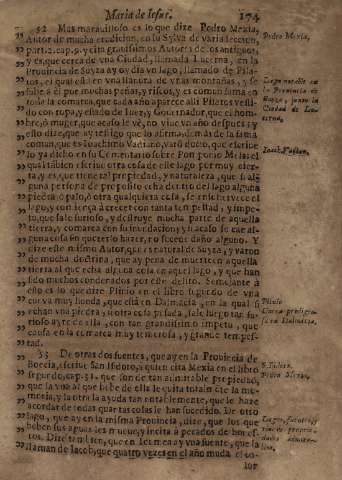 Maria de Iesus. 174
52 Mas marauilloso es lo que dize Pedro Mexia,
Autor de mucha erudicion, en su Sylva de varia leccion,
part. 2. cap. 9. y cita grauissimos Autores de los antiguos,
y es, que cerca de vna Ciudad, llamada Lucerna, en la
Provincia de Suyza ay oy dia vn lago, llamado de Pila-
tos, el qual está en vna llanura de vnas montañas, y se
sabe a él por muchas peñas, y riscos, y es comun fama en
toda la comarca, que cada año aparece alli Pilatos vesti-
do con ropa, y estado de Iuez, ò Gouernador, que el hom-
bre, ò muger, que acaso le vé, no viue vn año despues; y
esto dize, que ay testigo que lo afirma, demás de la fama
comun, que es Ioachimo Vadiano, varó docto, que escriue
lo ya dicho en su Comentario sobre Pomponio Mela: el
qual tábien escriue otra cosa de este lago por muy cier-
ta, y es, que tiene tal propiedad, y naturaleza, que si al-
guna persona de proposito echa dentro del lago alguna
piedra, ò palo, ò otra qualquiera cosa, se
lago, y comiença à crecer con tanta tempestad, y impe-
tu, que sale furioso, y destruye mucha parte de aquella
tierra, y comarca con su inundacion; y si acaso se cae al-
guna cosa sin quererlo hazer, no sucede daño alguno. Y
dize este mismo Autor, que es natural de Suyza, y varon
de mucha doctrina, que ay pena de muerte en aquella
tierra al que echa alguna cosa en aquel lago, y que han
sido muchos condenados por este delito. Semejante à
esto es lo que dize Plinio en el libro segundo de vna
cueua muy honda, que está en Dalmacia, en la qual si
echan vna piedra, ù otra cosa pesada, sale luego tan fu-
rioso ayre de ella, con tan grandissimo impetu, que
causa en la comarca muy temerosa, y grande tem-
pestad.
53 De otras dos fuentes, que ay en la Provincia de
Boecia, escriue San Isidoro, à quien cita Mexia en el libro
segundo, cap. 31. que son de tan admirable propiedad,
que la vna al que bebe de ella le quita totalmente la me-
moria, y la otra la ayuda tan notablemente, que le haze
acordar de todas quantas cosas le han sucedido. De otro
lago, que ay en la misma Provincia, dize, que los que
beben sus aguas les mueue, y incita à pecados
tos. Dize tambien, que en Idumea ay vna fuente, que la
llaman de Iacob, que quatro vezes en el año muda el co-
lor
Pedro Mexia.
Lago notable en
la Provincia de
Suyza, junto la
Ciudad de Lu-
cerna.
Plinio
Cueua
en Dalmacia.
S. Isidor.
Pedro Mexia.